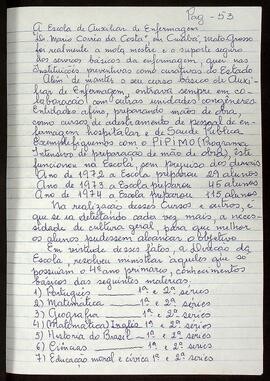 Pag - 53
A Escola de Auxiliar de Enfermagem
"Dr. Mario Corrêa da Costa", em Cuiabá, Mato Grosso
foi realmente a mola mestre e o suporte seguro
dos serviços básicos da enfermagem, quer nas
Instituições preventivas como curativas do Estado
Além de manter o seu curso básico de Auxi-
liar de Enfermagem, entrava sempre em co-
laboração com outras unidades congêneres
Entidades afins, preparando mãos de obra,
como cursos de adestramento de pessoal de en-
fermagem hospitalar e de Saúde Pública.
Exemplifiquemos com o PIPIMO (Programa
Intensivo de preparação de mão de obra), este
funcionou na Escola, sem prejuizo dos alunos
Ano de 1972 a Escola preparou 29 alunos
Ano de 1973 a Escola preparou 45 alunos
Ano de 1974 a Escola preparou 115 alunos
Na realização desses Cursos e outros, e
que se ia detestando cada vez mais, a neces-
sidade de cultura geral, para que melhor
os alunos pudessem alcançar o objetivo.
Em virtude desses fatos, a direção da
Escola, resolveu ministrar aqueles que so
possuiam o 4º ano primário, conhecimentos
básicos das seguintes matérias.
1) Português ___ 1ª e 2ª séries
2) Matemática ___ 1ª e 2ª séries
3) Geografia ___ 1ª e 2ª séries
4) (Matemática) Inglês 1ª e 2ª séries
5) História do Brasil _ 1ª e 2ª séries
6) Ciências ___ 1ª e 2ª séries
7) Educação moral e civica 1ª e 2ª séries